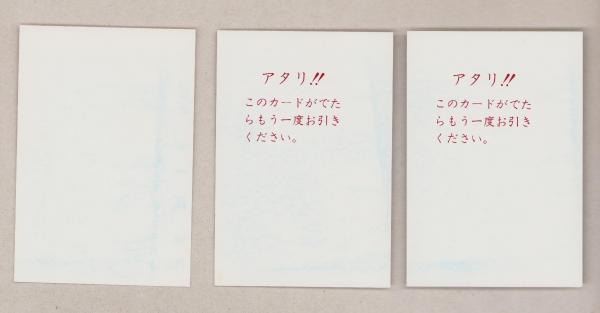 アタリ!!
このカードがでた
らもう一度お引き
ください。
アタリ!!
このカードがでた
らもう一度お引き
ください。